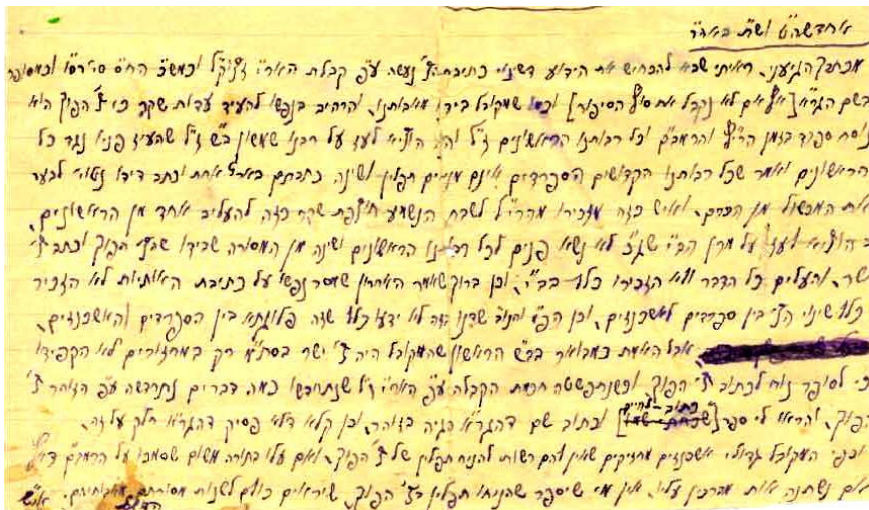 אחדשה"ט ושת באה"ר
מכתבך הגיעני. ראיתי שבא להכחיש את הידוע דשינוי כתיבת הצ' נעשה ע"פ קבלת האר"י זצוק"ל וכמש"כ החת"ס סי' רס"ו וכמסופר
בשם הגר"א [אף אם לא נקבל את סוף הסיפור] וכפי שמקובל בידינו מאבותנו. והרהיב בנפשו להעיד עדות שקר כי צ' הפוך הוא
נוסח ספרד בזמן הרי"ף והרמב"ם וכל רבותנו הראשונים ז"ל והוציא לעז על רבנו שמשון ב"ש ז"ל שהעיז פניו נגד כל
הראשונים ואמר שכל רבותנו הקדושים הספרדים אינם מניחים תפלין ושינה כתבתם באר"ץ אחת וכתב דידו נטויה לבער
את המכשול מן הכרם. ואיש כזה מזכירו מהרי"ל לשבח הנשמע חוצפת שקר כזה להעליב אחד מן הראשונים.
והוציא לעז על מרן הב"י שג"כ לא נשא פנים לכל רבותנו הראשונים ושינה מן המסורה שבידו שהצ' הפוך וכתב צ'
ישר. והעלים כל הדבר ולא הזכירו כלל בב"י. וכן ברוך שאמר האחרון שמסר נפשו על כתיבת האותיות לא הזכיר
כלל שינוי הצ' בין ספרדים לאשכנזים. וכן הפ"י והנוב' שדנו בזה לא ידעו כלל שזה פלוגתא בין הספרדים והאשכנזים.
אבל האמת כמבואר בב"ש הראשון שהמקובל היה צ' ישר בסת"ם רק במחזורים לא הקפידו
כי לסופר נוח לכתוב צ' הפוך. וכשנתפשטה חכמת הקבלה ע"פ האר"י ז"ל שנתחדשו כמה דברים נתחדשה ע"פ הזוהר צ'
הפוך. והראו לי ספר [כתוב לחיים] וכתוב שם דהגר"א הגיה בזוהר. וכן קלא דלא פסיק דהגר"א חלק על זה.
וכפי המקובל גדולי אשכנזים מחזיקים שאין להם רשות להניח תפלין של צ' הפוך. ואם עלו בתורה משום שסמכו על הרמב"ם דאף
אם נשתנה אות מברכין עליו. אין מי שיספר שהניחו תפלין בצ' הפוך. שיראים כולם לשנות מסורתם מאבותיהם.